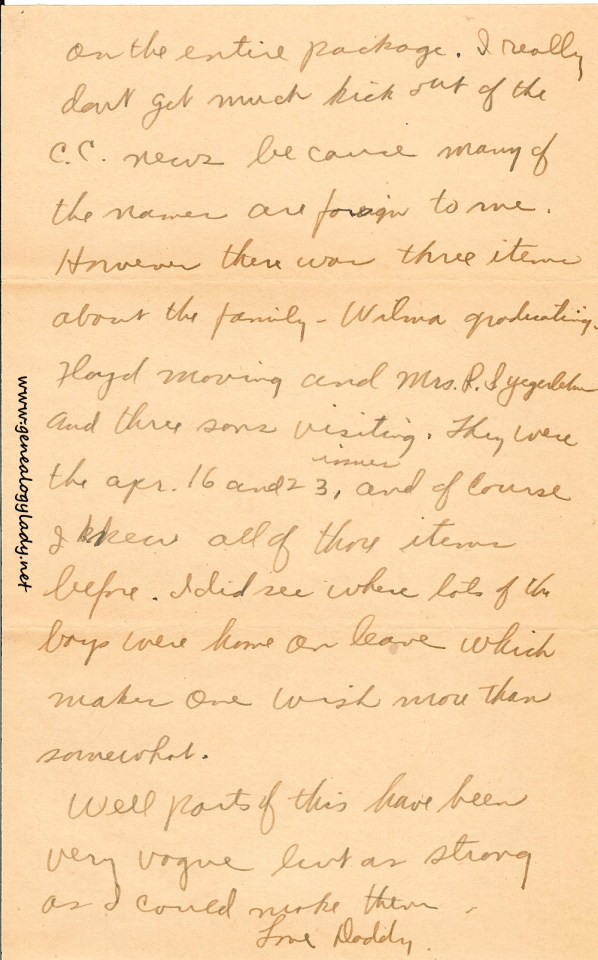 on the entire package. I really
dont get much kick out of the
C.C. news because many of
the names are foreign to me.
However there was three items
about the family - Wilma graduating.
Floyd moving and Mrs. R. S Yegerlehner
and three sons visiting. They were
issues
the apr. 16 and 23, and of course
I knew all of those items
before. I did see where lots of the
boys were home on leave which
makes one wish more than
somewhat.
Well parts of this have been
very vague but as strong
as I could make them.
Love Daddy.
www.genealogylady.net